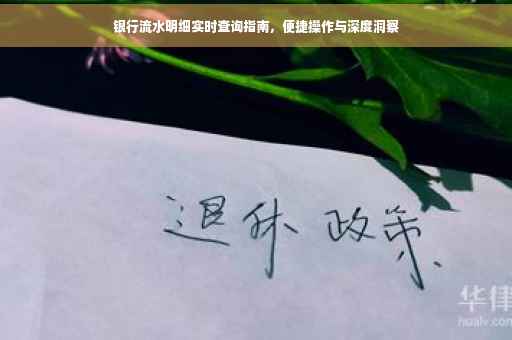 银行流水明细实时查询指南，便捷操作与深度洞察
退休 政策
华律
hualv.com